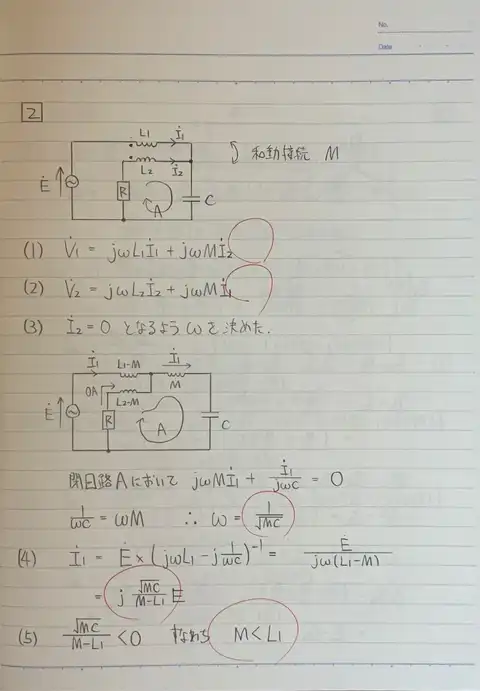 No.
Date
2
L1 İ1
L2 İ2
Ė R A C
和動接続 M
(1) V̇1 = jωL1İ1 + jωMİ2
(2) V̇2 = jωL2İ2 + jωMİ1
(3) İ2 = 0 となるよう ωを決めた.
İ1 L1-M İ1
0A L2-M M
Ė R A C
閉回路Aにおいて jωMİ1 + İ1/jωC = 0
1/ωC = ωM ∴ ω = 1/√MC
(4) İ1 = Ė × (jωL1 - j1/ωC)^-1 = Ė/jω(L1-M)
= j √MC/M-L1 E
(5) √MC/M-L1 < 0 すなわち M < L1